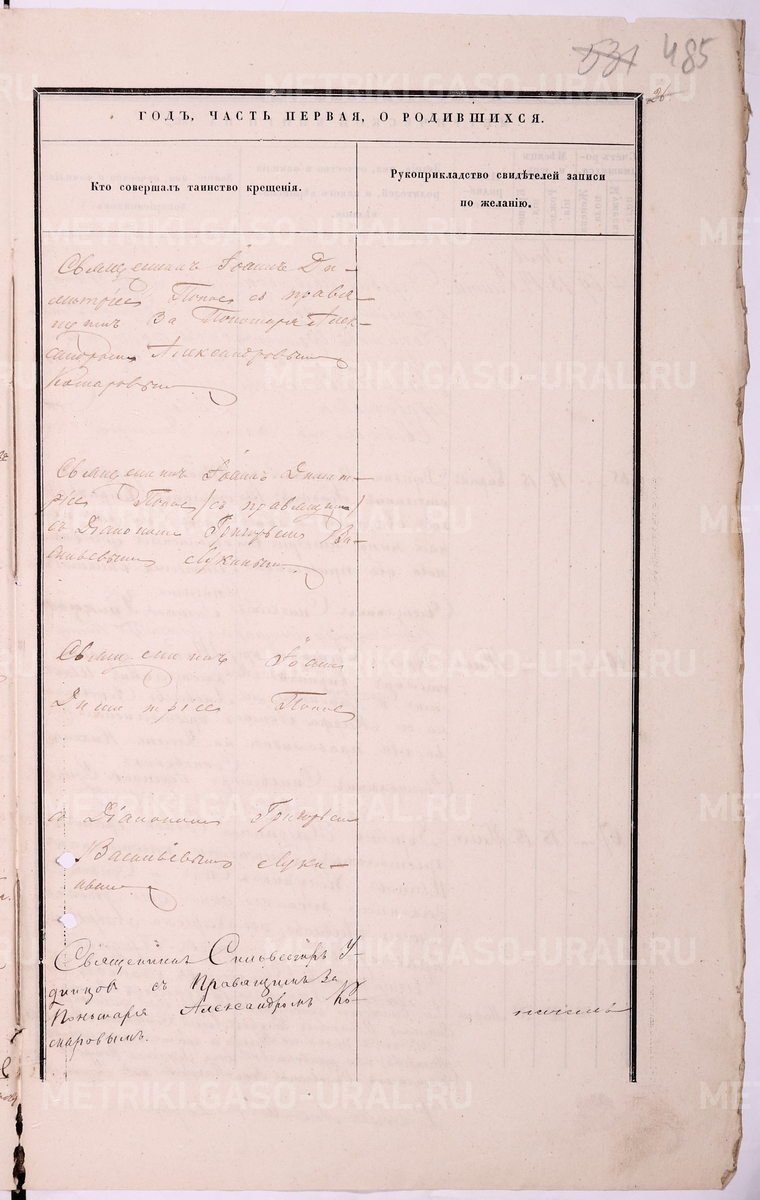 531 485
26
ГОДЪ, ЧАСТЬ ПЕРВАЯ, О РОДИВШИХСЯ.
Кто совершалъ таинство крещенія.
Рукоприкладство свидѣтелей записи
по желанію.
Священникъ Іоаннъ Ди-
митріевъ Поповъ съ правя-
щимъ За Пономаря Алек-
сандромъ Александровымъ
Комаровымъ
Священникъ Іоаннъ Димит-
ріевъ Поповъ (съ правящимъ)
съ Діакономъ Григорьемъ Ва-
сильевымъ Лукинымъ
Священникъ Іоаннъ
Димитріевъ Поповъ
съ Діакономъ Григорьемъ
Васильевымъ Луки-
нымъ
Священникъ Сильвестръ У-
динцовъ съ Правящимъ За
Пономаря Александромъ Ко-
маровымъ.
METRIKI.GASO-URAL.RU